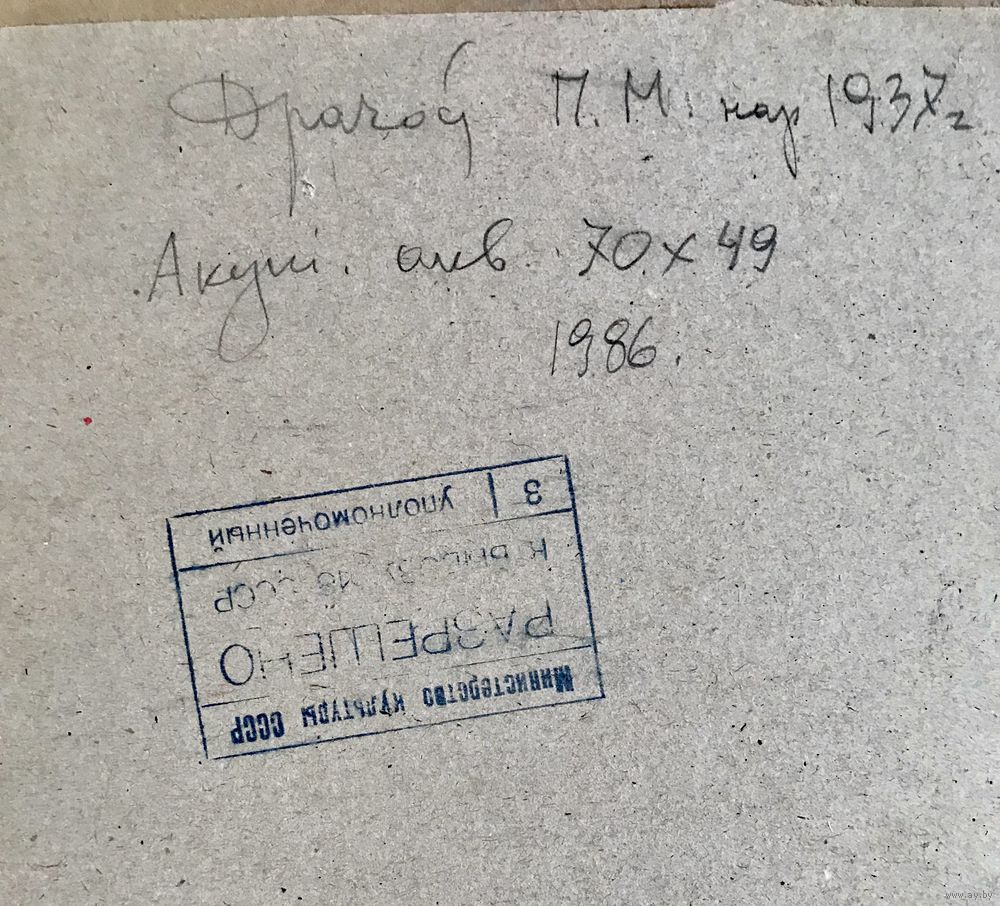 Драчоў П.М. нар 1937г
Акуні. акв. 70х49
1986.
Министерство культуры СССР
РАЗРЕШЕНО
к вывозу из СССР
3 уполномоченный
www.ay.by